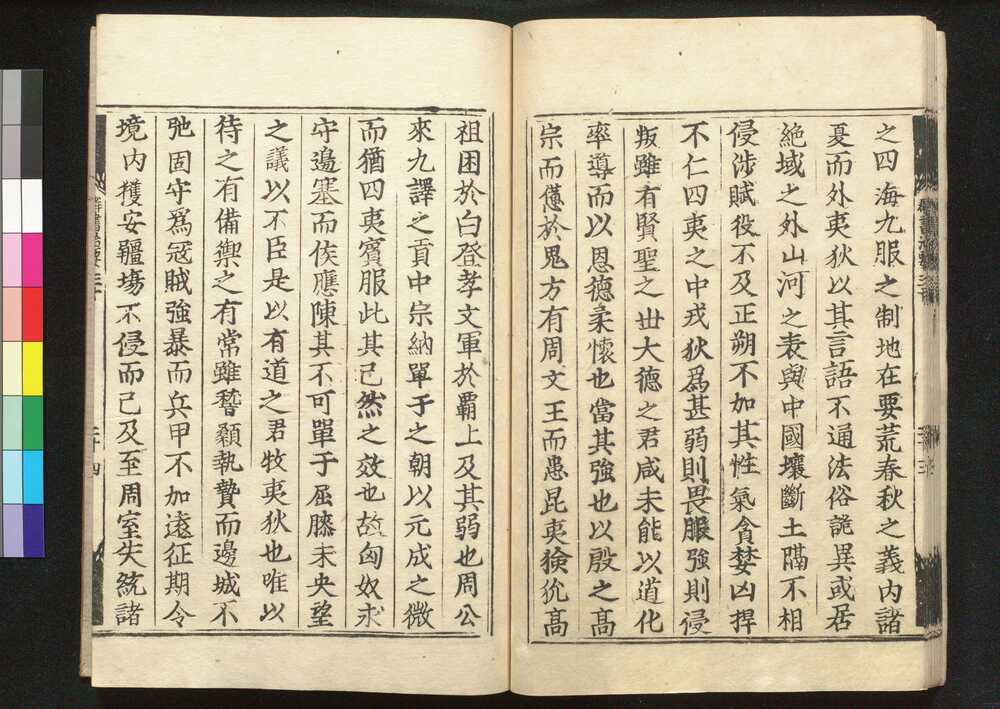 之四海九服之制地在要荒春秋之義内諸
夏而外夷狄以其言語不通法俗詭異或居
絶域之外山河之表與中國壤斷土隔不相
侵渉賦役不及正朔不加其性氣貪婪凶捍
不仁四夷之中戎狄爲甚弱則畏服強則侵
叛雖有賢聖之世大德之君咸未能以道化
率導而以恩德柔懷也當其強也以殷之髙
宗而憊於鬼方有周文王而患昆夷獫狁髙
祖困於白登孝文軍於霸上及其弱也周公
來九譯之貢中宗納單于之朝以元成之微
而猶四夷賓服此其已然之效也故匈奴求
守邊塞而侯應陳其不可單于屈膝未央望
之議以不臣是以有道之君牧夷狄也唯以
待之有備禦之有常雖稽顙執贄而邊城不
弛固守爲冦賊強暴而兵甲不加遠征期令
境内獲安疆埸不侵而已及至周室失統諸
群書治要三十
三十四